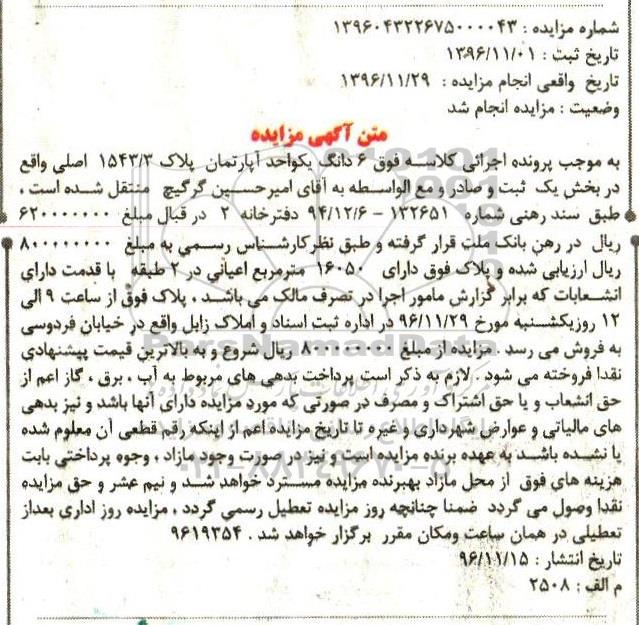 شماره مزایده : ۱۳۹۶۰۴۳۲۲۶۷۵۰۰۰۰۴۳
تاریخ ثبت : ۱۳۹۶/۱۱/۰۱
تاریخ واقعی انجام مزایده : ۱۳۹۶/۱۱/۲۹
وضعیت : مزایده انجام شد
متن آگهی مزایده
به موجب پرونده اجرائی کلاسه فوق ۶ دانگ یکواحد آپارتمان پلاک ۱۵۴۳/۳ اصلی واقع
در بخش یک ثبت و صادر و مع الواسطه به آقای امیرحسین گرگیچ منتقل شده است ،
طبق سند رهنی شماره ۱۳۲۶۵۱ - ۹۴/۱۲/۶ دفترخانه ۲ در قبال مبلغ ۶۲۰۰۰۰۰۰۰
ریال در رهن بانک ملت قرار گرفته و طبق نظر کارشناس رسمی به مبلغ ۸۰۰۰۰۰۰۰۰
ریال ارزیابی شده و پلاک فوق دارای ۱۶۰۵۰ مترمربع اعیانی در ۲ طبقه با قدمت دارای
انشعابات که برابر گزارش مامور اجرا در تصرف مالک می باشد ، پلاک فوق از ساعت ۹ الی
۱۲ روزیکشنبه مورخ ۹۶/۱۱/۲۹ در اداره ثبت اسناد و املاک زابل واقع در خیابان فردوسی
به فروش می رسد . مزایده از مبلغ ۸۰۰۰۰۰۰۰۰ ریال شروع و به بالاترین قیمت پیشنهادی
نقدا فروخته می شود . لازم به ذکر است پرداخت بدهی های مربوط به آب ، برق ، گاز اعم از
حق انشعاب و یا حق اشتراک و مصرف در صورتی که مورد مزایده دارای آنها باشد و نیز بدهی
های مالیاتی و عوارض شهرداری و غیره تا تاریخ مزایده اعم از اینکه رقم قطعی آن معلوم شده
یا نشده باشد به عهده برنده مزایده است و نیز در صورت وجود مازاد ، وجوه پرداختی بابت
هزینه های فوق از محل مازاد بهبرنده مزایده مسترد خواهد شد و نیم عشر و حق مزایده
نقدا وصول می گردد ضمنا چنانچه روز مزایده تعطیل رسمی گردد ، مزایده روز اداری بعداز
تعطیلی در همان ساعت ومکان مقرر برگزار خواهد شد . ۹۶۱۹۳۵۴
تاریخ انتشار : ۹۶/۱۱/۱۵
م الف : ۲۵۰۸
ParsNamadData
۰۲۱-۸۸۳۴۹۶۷۰-۵